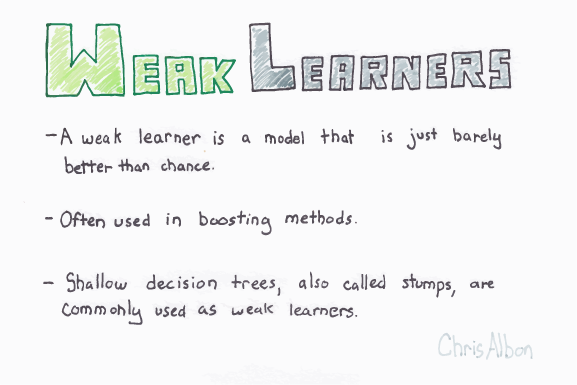 WEAK LEARNERS
- A weak learner is a model that is just barely
better than chance.
- Often used in boosting methods.
- Shallow decision trees, also called stumps, are
commonly used as weak learners.
Chris Albon